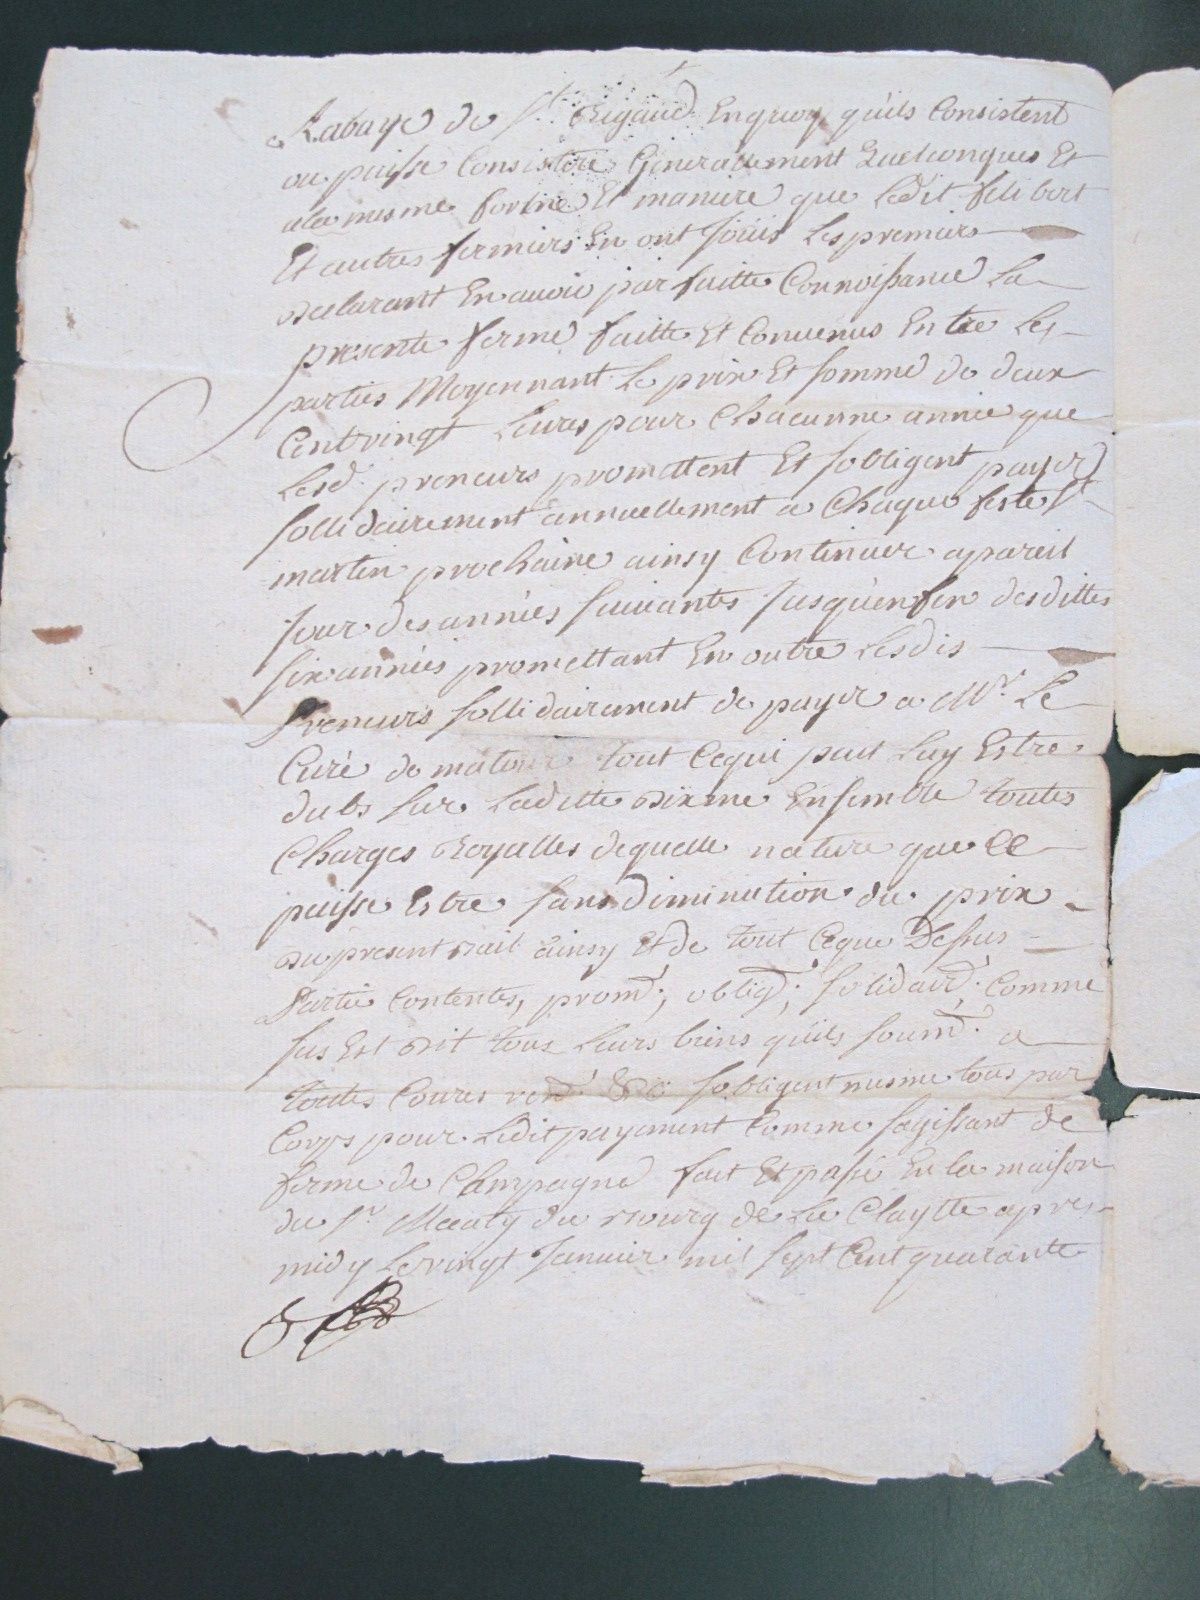 Labaye de St Rigaud Enquoy quils Consistent
ou puisse Consister Generallement Quelconques Et
ala mesme forme Et maniere que Ledit felibert
Et autres fermiers En ont Joüis Les premiers
declarant En avoir parfaitte Connoissance La
presente ferme faitte Et Convenus Entre Les
parties Moyennant Le prix Et somme de deux
Cent vingt Livres pour Chacunne année que
Lesd. preneurs promettent Et sobligent payer
sollidairement annuellement a Chaque feste St
martin prochaine ainsy Continuer apareil
Jour des années suivantes Jusqu'en fin desdittes
six années promettant En outre Lesdis
Preneurs sollidairement de payer a Mr. Le
Curé de matour tout Cequi peut Luy Estre
dubs sur Laditte dixme Ensemble toutes
Charges Royalles dequelle nature que Ce
puisse Estre sans diminution du prix
du present bail ainsy Et de tout Ceque Dessus
Partie Contentes, promt; obligt; solidairt; Comme
sus Est dit tous Leurs biens quils soumt. a
toutes Coures rent &c sobligent mesme tous par
Corps pour Ledit payement Comme sagissant de
ferme de Campagne fait Et passé En la maison
du Sr. du bourg de La Claytte apres
midy Le vingt Janvier mil sept Cent quarante